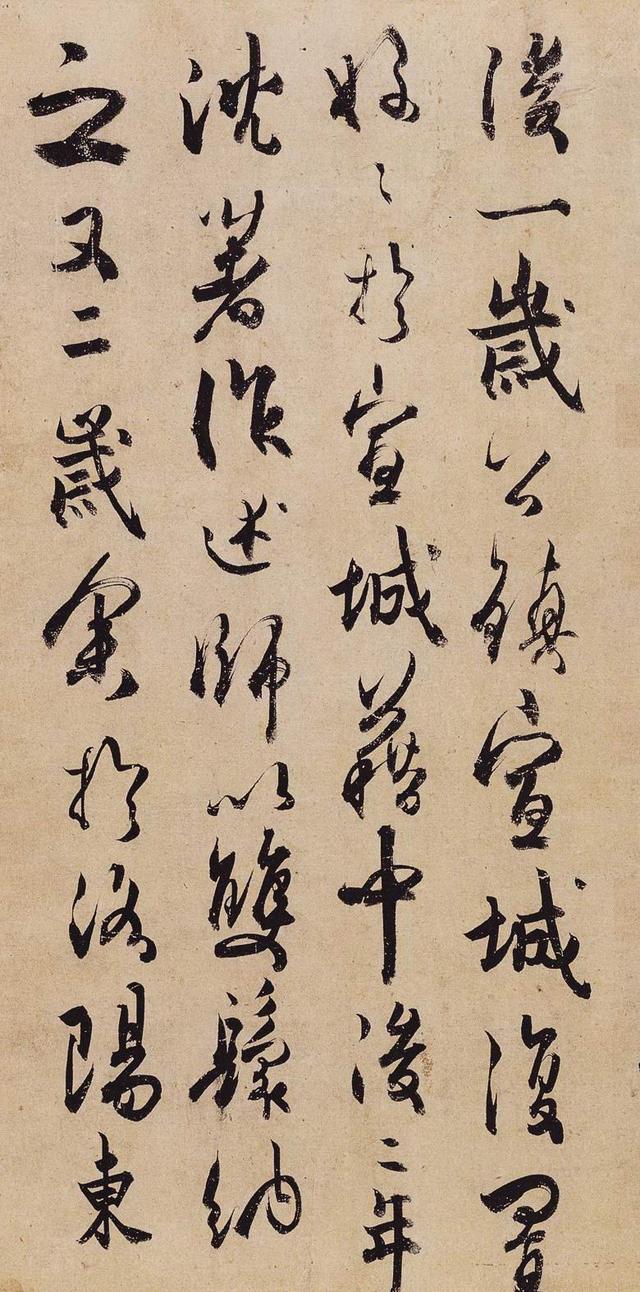 後一歲公鎮宣城復置
好〻於宣城藉中後二年
沈著作述師以雙鬟納
之又二歲余於洛陽東